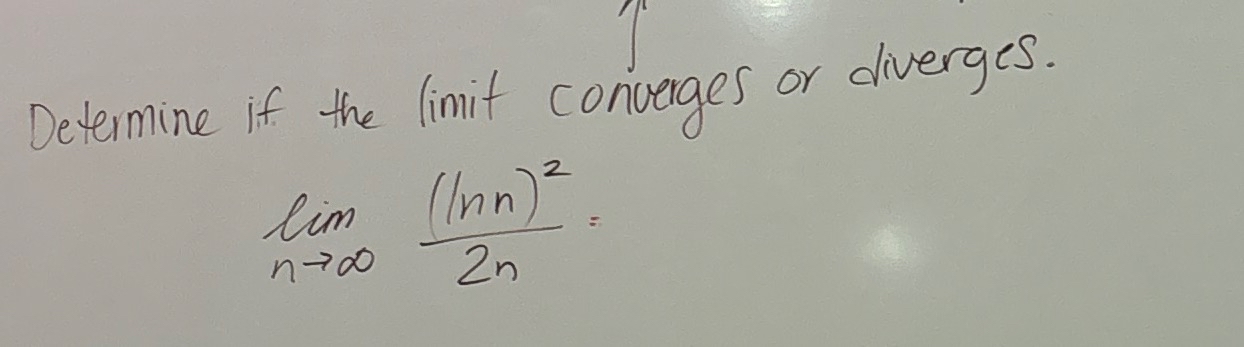 Determine if the limit converges or diverges.
lim n→∞ (ln n)² / 2n =